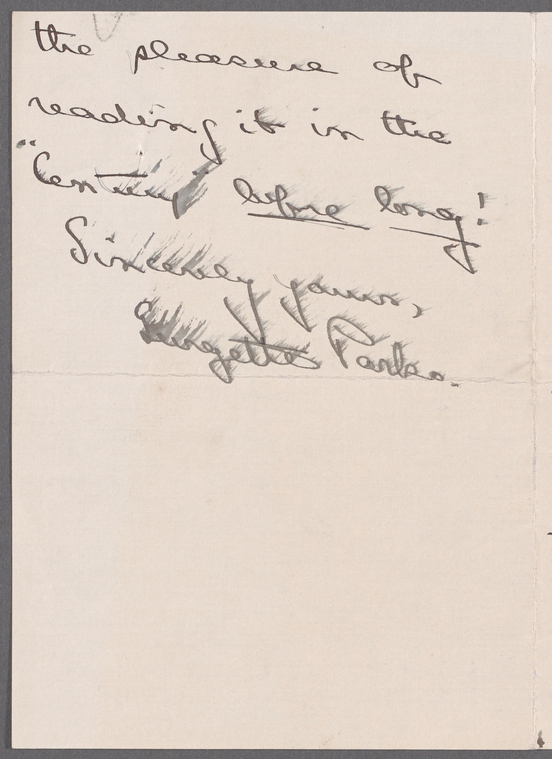 the pleasure of
reading it in the
"Century" before long!
Sincerely yours,
Parker.